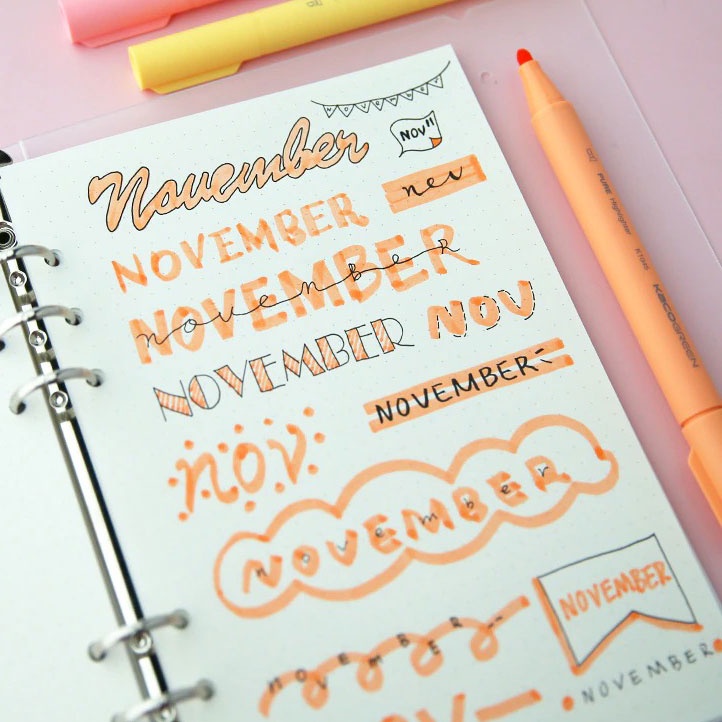 NOVEMBER
NOV"
November
nov
NOVEMBER
NOVEMBER
november
NOV
NOVEMBER
NOVEMBER
nov
NOVEMBER
november
NOVEMBER
NOVEMBER
NOVEMBER
PURE Highlighter K1045
KACOGREEN